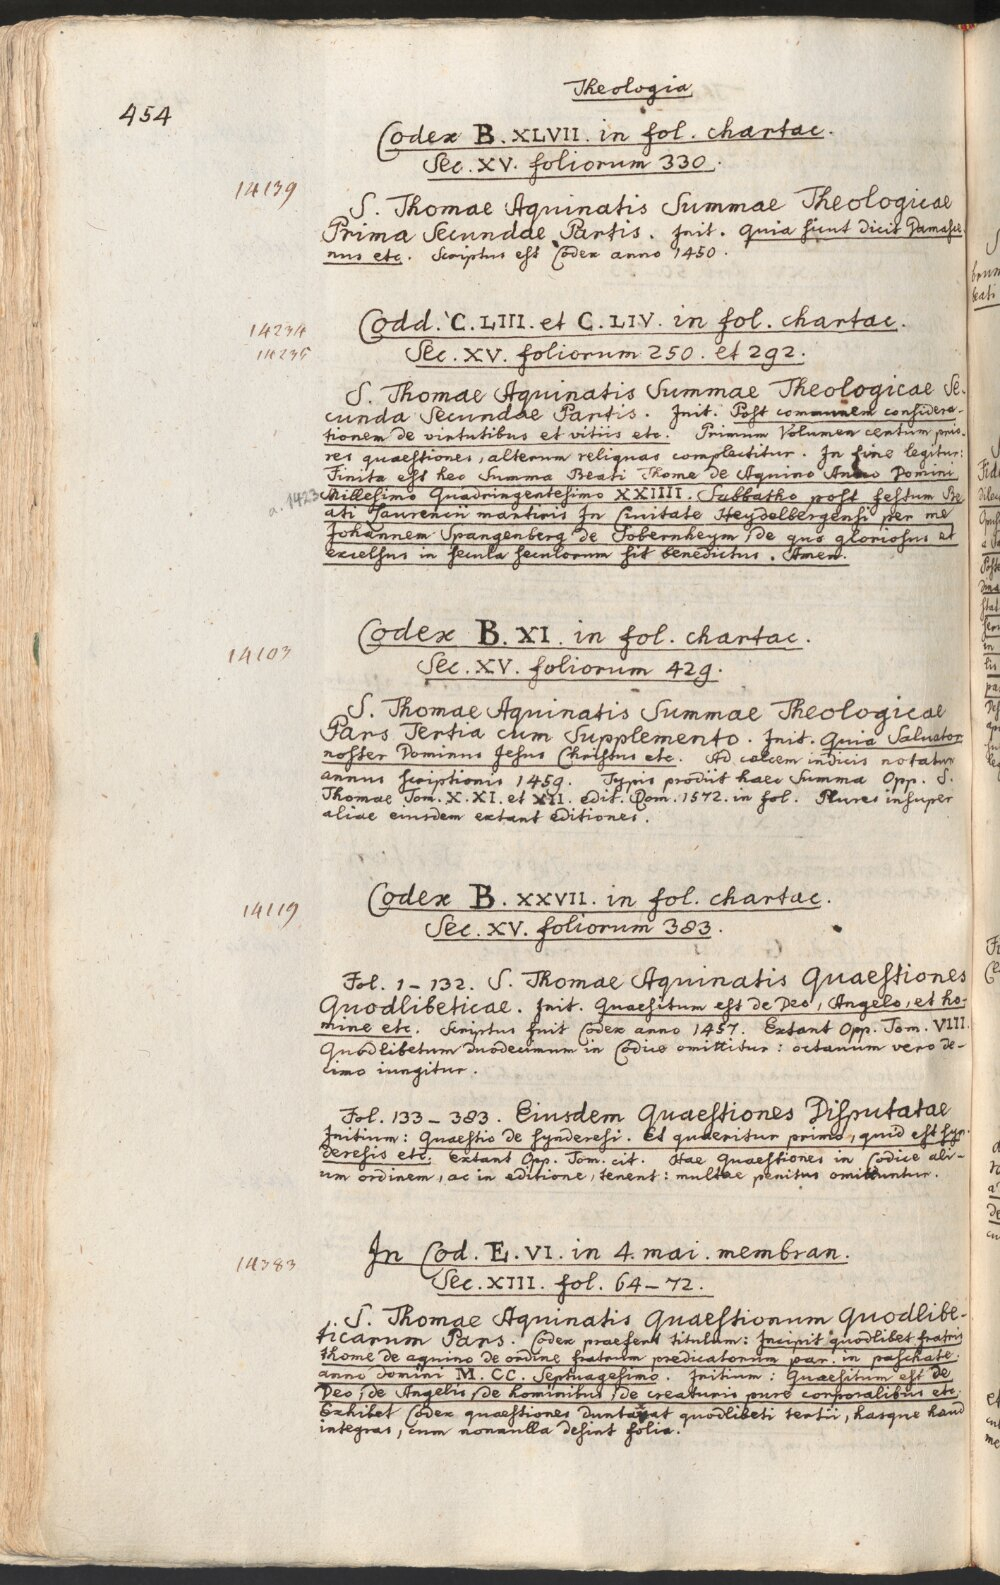 Theologia
454
Codex B. XLVII. in fol. chartac.
Sec. XV. foliorum 330.
14139
S. Thomae Aquinatis Summae Theologicae
Prima Secundae Partis. Init. Quia sicut dicit Damasce-
nus etc. Scriptus est Codex anno 1450.
14234
14235
Codd. C. LIII. et C. LIV. in fol. chartac.
Sec. XV. foliorum 250. et 292.
S. Thomae Aquinatis Summae Theologicae Se-
cunda Secundae Partis. Init. Post communem considera-
tionem de virtutibus et vitiis etc. Primum Volumen centum prio-
res quaestiones, alterum reliquas complectitur. In fine legitur:
Finita est hec Summa Beati Thome de Aquino Anno Domini
a. 1423
Millesimo Quadringentesimo XXIIII. Sabbatho post festum Be-
ati Laurencii martiris In Civitate Heydelbergensi per me
Johannem Spangenberg de Sobernheym, de quo gloriosus et
excelsus in secula seculorum sit benedictus. Amen.
14103
Codex B. XI. in fol. chartac.
Sec. XV. foliorum 429.
S. Thomae Aquinatis Summae Theologicae
Pars Tertia cum Supplemento. Init. Quia Salvator
noster Dominus Jesus Christus etc. Ad calcem indicis notatur
annus scriptionis 1459. Typis prodiit haec Summa Opp. S.
Thomae Tom. X. XI. et XII. edit. Rom. 1572. in fol. Plures insuper
aliae eiusdem extant editiones.
14119
Codex B. XXVII. in fol. chartac.
Sec. XV. foliorum 383.
Fol. 1-132. S. Thomae Aquinatis Quaestiones
Quodlibeticae. Init. Quaesitum est de Deo, Angelo, et ho-
mine etc. Scriptus fuit Codex anno 1457. Extant Opp. Tom. VIII.
Quodlibetum duodecimum in Codice omittitur: octavum vero de-
cimo iungitur.
Fol. 133-383. Eiusdem Quaestiones Disputatae
Initium: Quaestio de synderesi. Et quaeritur primo, quid est syn-
deresis etc. Extant Opp. Tom. cit. Hae Quaestiones in Codice ali-
um ordinem, ac in editione, tenent: multae penitus omittuntur.
14383
In Cod. E. VI. in 4. mai. membran.
Sec. XIII. fol. 64-72.
S. Thomae Aquinatis Quaestionum Quodlibe-
ticarum Pars. Codex praesens titulum: Incipit quodlibet fratris
thome de aquino de ordine fratrum predicatorum par. in paschate
anno domini M. CC. Septuagesimo. Initium: Quaesitum est de
Deo, de Angelis, de hominibus, de creaturis pure corporalibus etc.
Exhibet Codex quaestiones duntaxat quodlibeti tertii, hasque haud
integras, cum nonnulla desint folia.